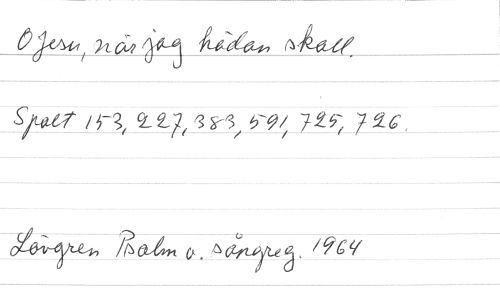 O Jesu, när jag hädan skall.
Spalt 153, 227, 383, 591, 725, 726.
Lövgren Psalm o. sångreg. 1964